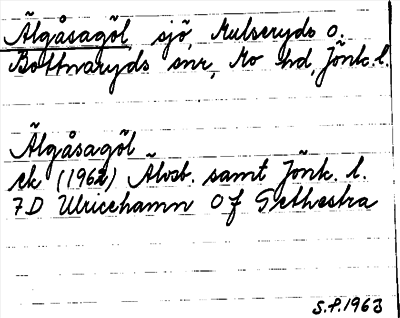 Älgåsagöl sjö, Mulseryds o.
Bottnaryds snr, Mo hd, Jönk. l.
Älgåsagöl
ek (1962) Älvsb. samt Jönk. l.
7D Ulricehamn Of Gethestra
S.P. 1963